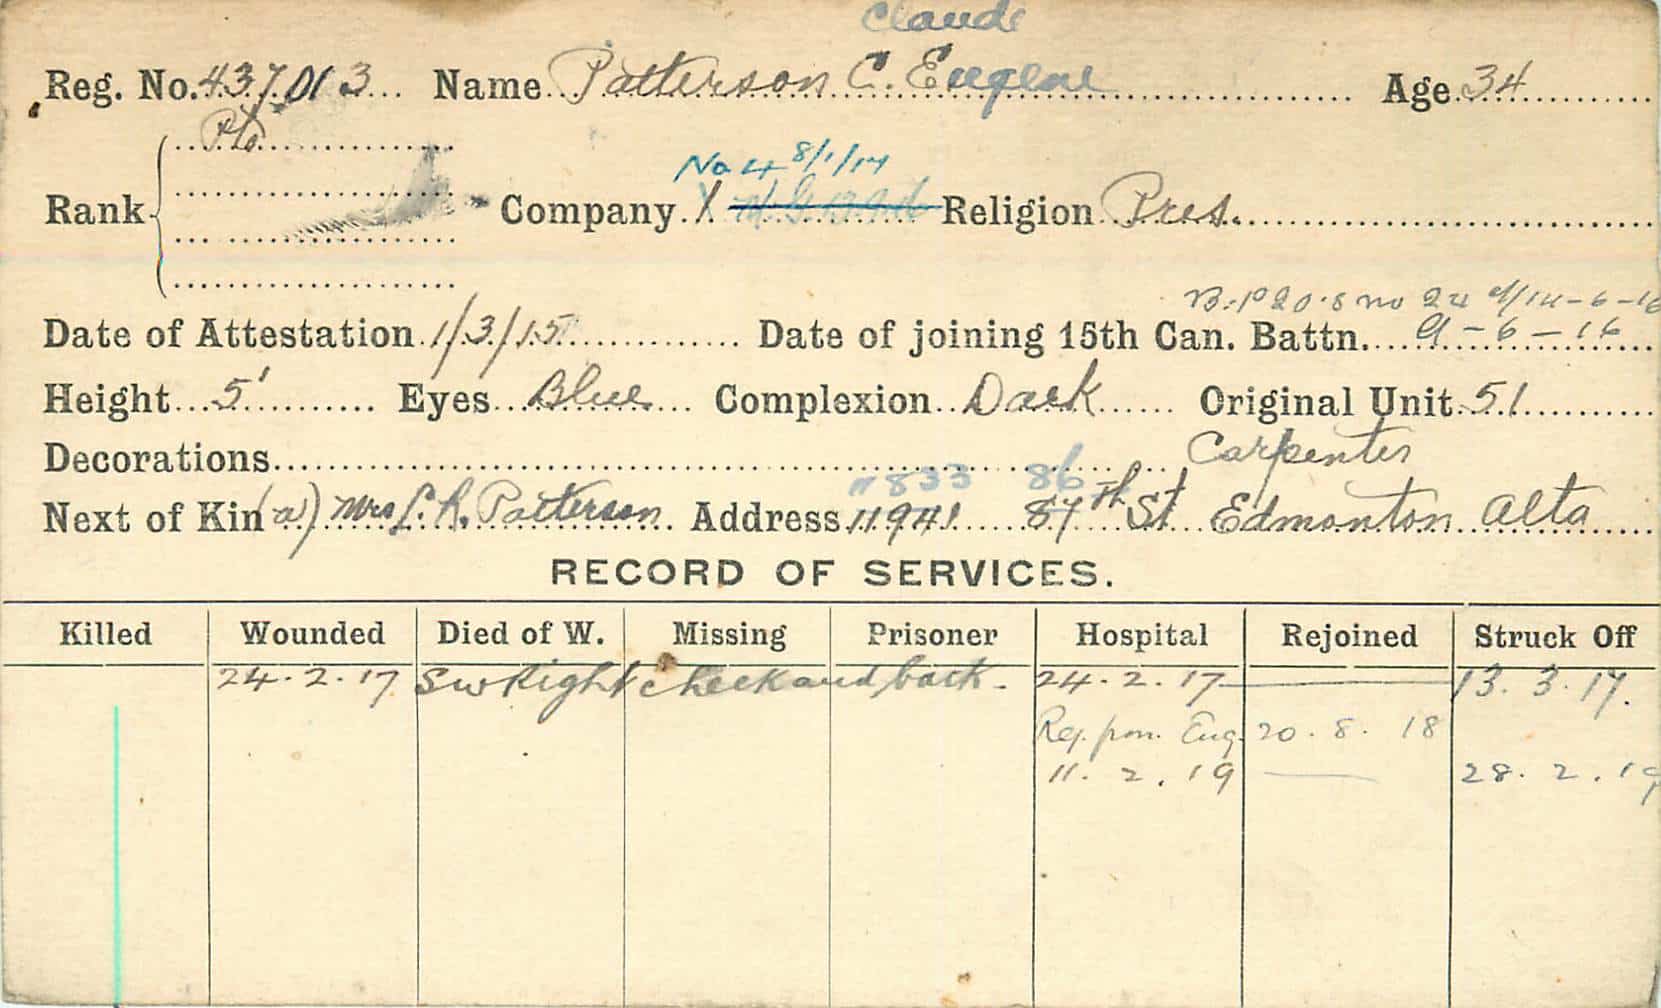 Claude
Reg. No. 437013 Name Patterson C. Eugene Age 34
Pte
No 4 8/1/17
Rank Company X Religion Pres.
24 d/14-6-16
Date of Attestation 1/3/15 Date of joining 15th Can. Battn. 9-6-16
Height 5' Eyes Blue Complexion Dark Original Unit 51
Decorations Carpenter
11833 86
Next of Kin (a) Mrs L. R. Patterson Address 11941 87th St Edmonton Alta
RECORD OF SERVICES.
Killed Wounded Died of W. Missing Prisoner Hospital Rejoined Struck Off
24.2.17 SW Right cheek and back. 24.2.17 13.3.17.
Rej. from Eng. 20.8.18
11.2.19 28.2.19